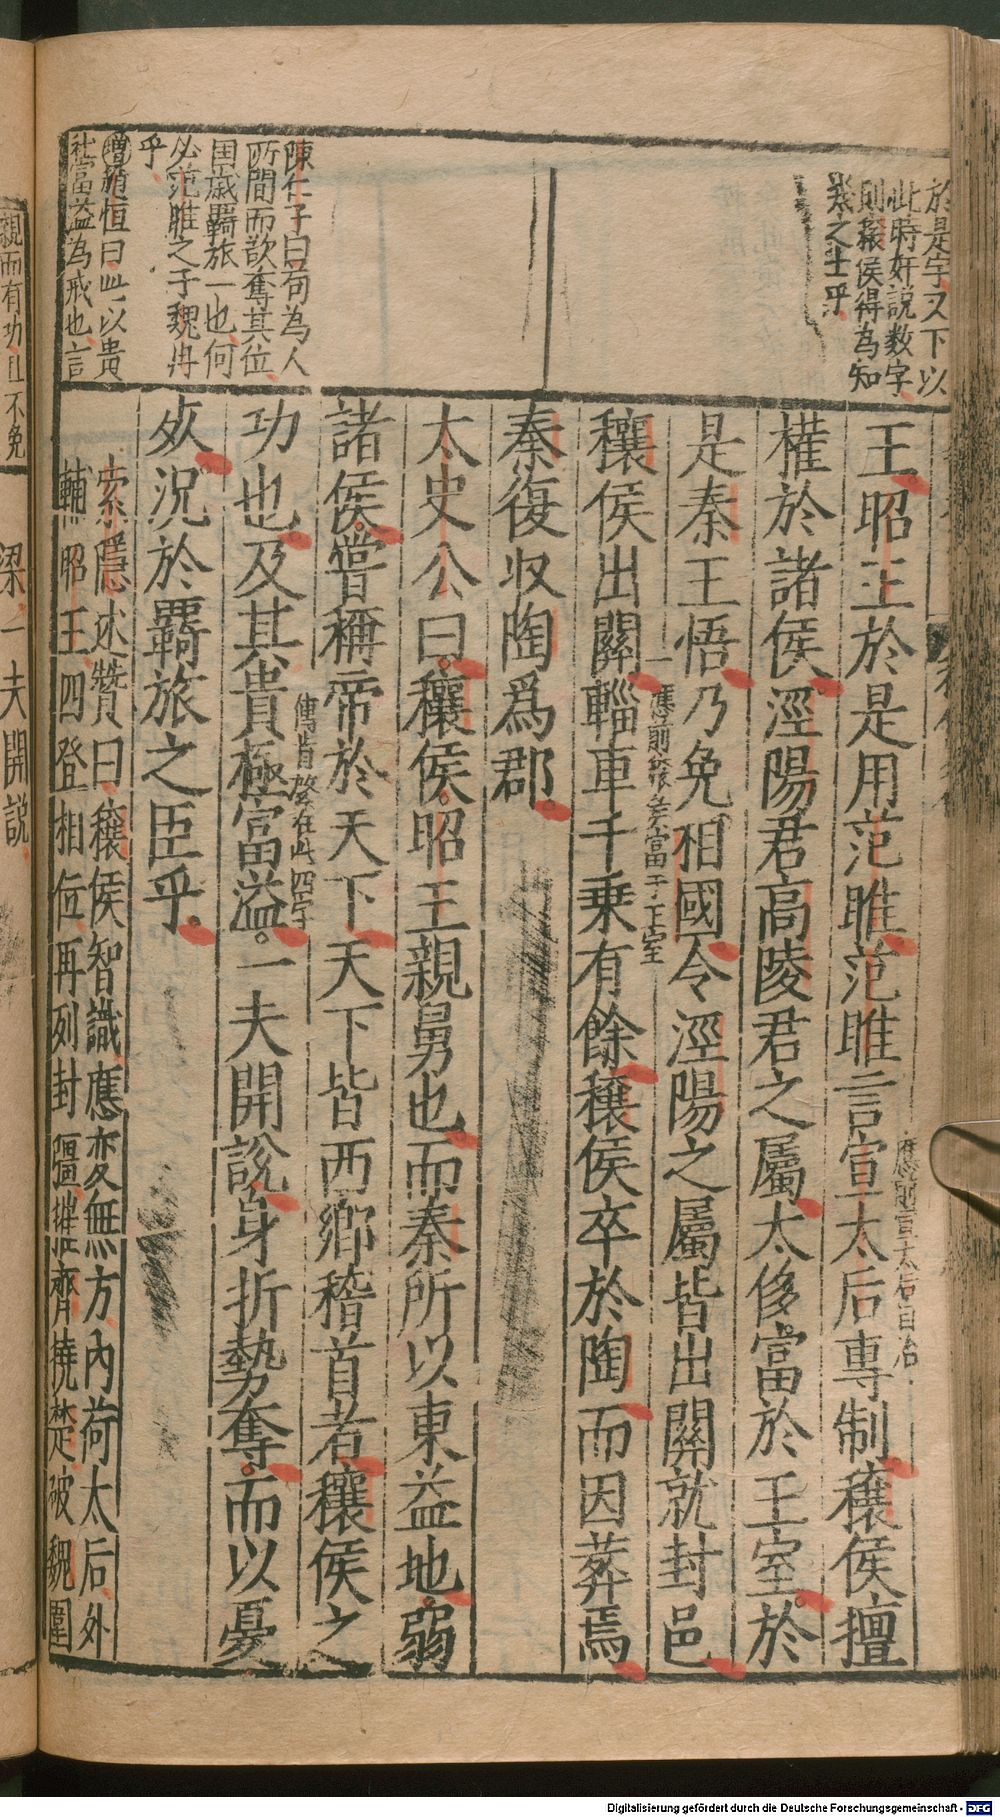 於是字又下以
此時奸說数字
則穰侯得為知
幾之士乎
陳仁子曰苟為人
所間而欲奪其位
固咸羇旅一也何
必范雎之于魏冉
乎
增楊恒曰此以貴
富益為戒也言
王昭王於是用范雎范雎言宣太后專制穰侯擅
應前宣太后自治
權於諸侯涇陽君高陵君之屬太侈富於王室於
是秦王悟乃免相國令涇陽之屬皆出關就封邑
應前 富于王室
穰侯出關輜車千乘有餘穰侯卒於陶而因葬焉
秦復收陶爲郡
太史公曰穰侯昭王親舅也而秦所以東益地弱
諸侯嘗稱帝於天下天下皆西鄉稽首者穰侯之
傳旨 在此四字
功也及其貴極富溢一夫開說身折勢奪而以憂
死況於羇旅之臣乎
索隱述贊曰穰侯智識應変無方內荷太后外
輔昭王四登相位再列封疆摧齊撓楚破魏圍
親而有功且不免
梁一夫開說
Digitalisierung gefördert durch die Deutsche Forschungsgemeinschaft - DFG